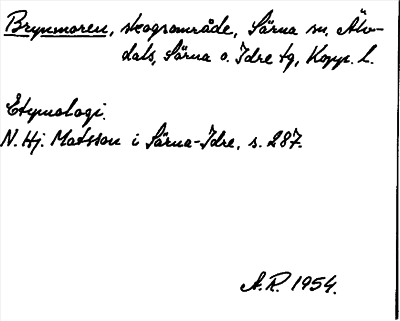 Brynmoren, skogsområde, Särna sn, Älv-
dals, Särna o. Idre tg, Kopp. L.
Etymologi.
N. Hj. Matsson i Särna-Idre, s. 287.
A.R. 1954.